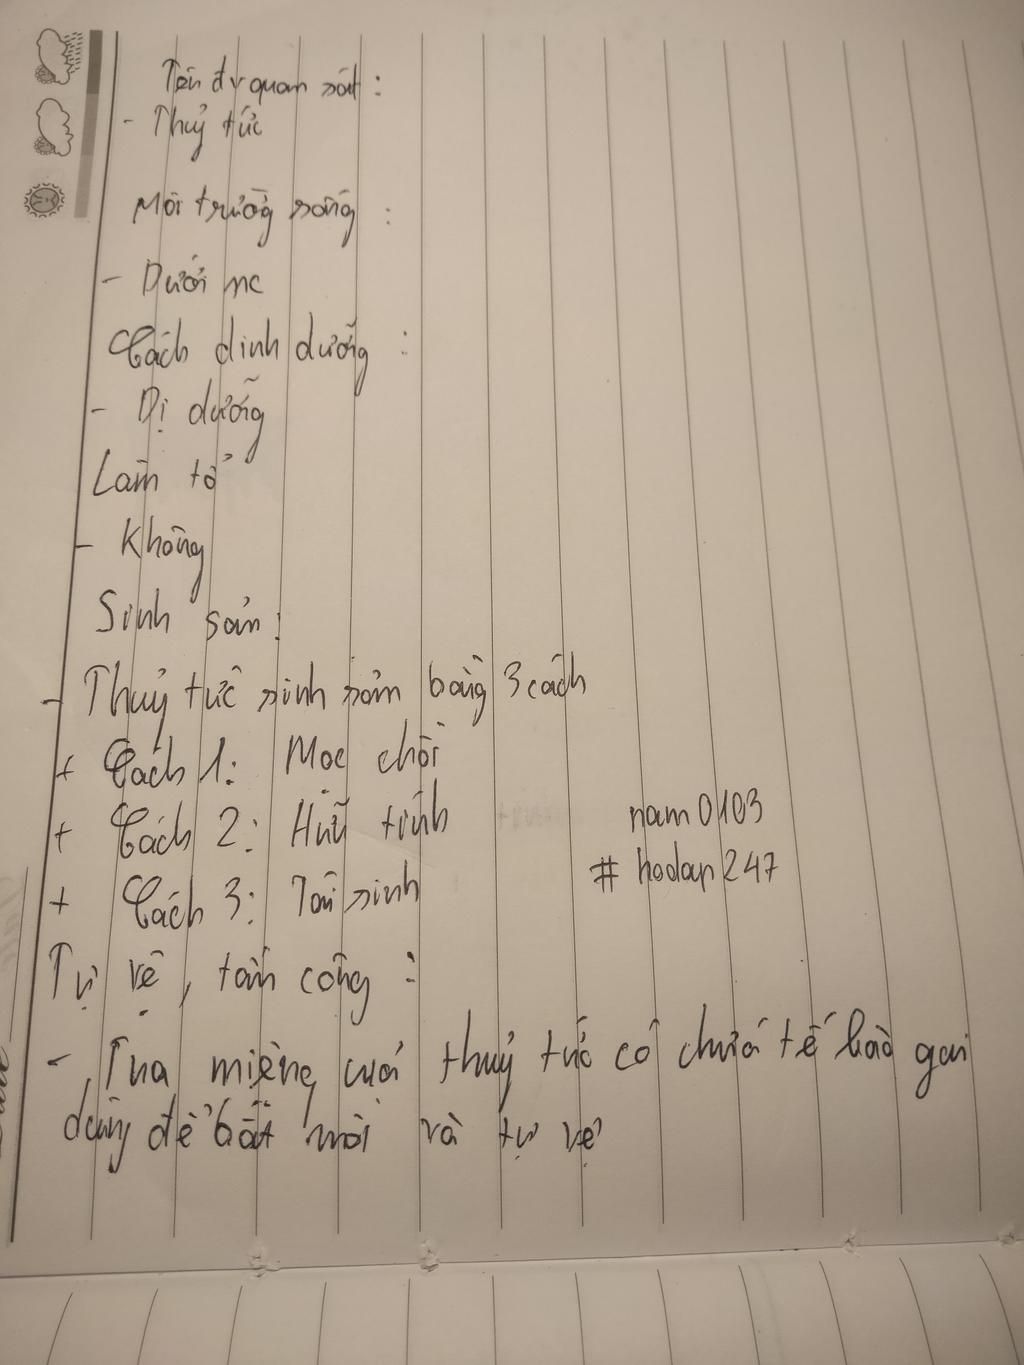 Tên đv quan sát :
- Thuỷ tức
Môi trường sống :
- Dưới nc
Cách dinh dưỡng :
- Dị dưỡng
Làm tổ
- Không
Sinh sản :
- Thuỷ tức sinh sản bằng 3 cách
+ Cách 1: Mọc chồi
+ Cách 2: Hữu tính
nam0103
+ Cách 3: Tái sinh
# hodap247
Tự vệ, tấn công :
- Tua miệng của thuỷ tức có chứa tế bào gai
dùng để bắt mồi và tự vệ